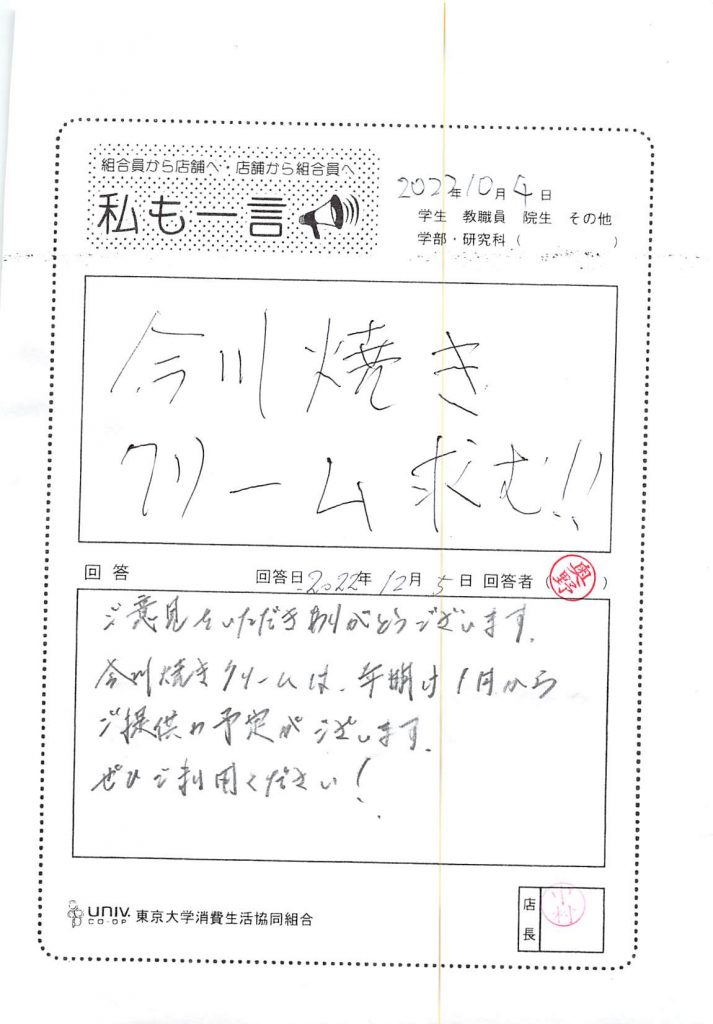 組合員から店舗へ・店舗から組合員へ
私も一言
2022年10月4日
学生 教職員 院生 その他
学部・研究科( )
今川焼き
クリーム求む!!
回答 回答日 2022年12月5日 回答者(奥野)
ご意見をいただきありがとうございます。
今川焼きクリームは、年明け1月から
ご提供の予定がございます。
ぜひご利用ください!
UNIV. CO-OP 東京大学消費生活協同組合
店長 中村